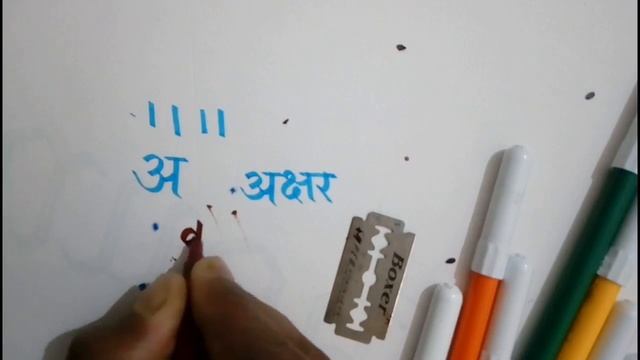 ।।।।
अ अक्षर
Boxer